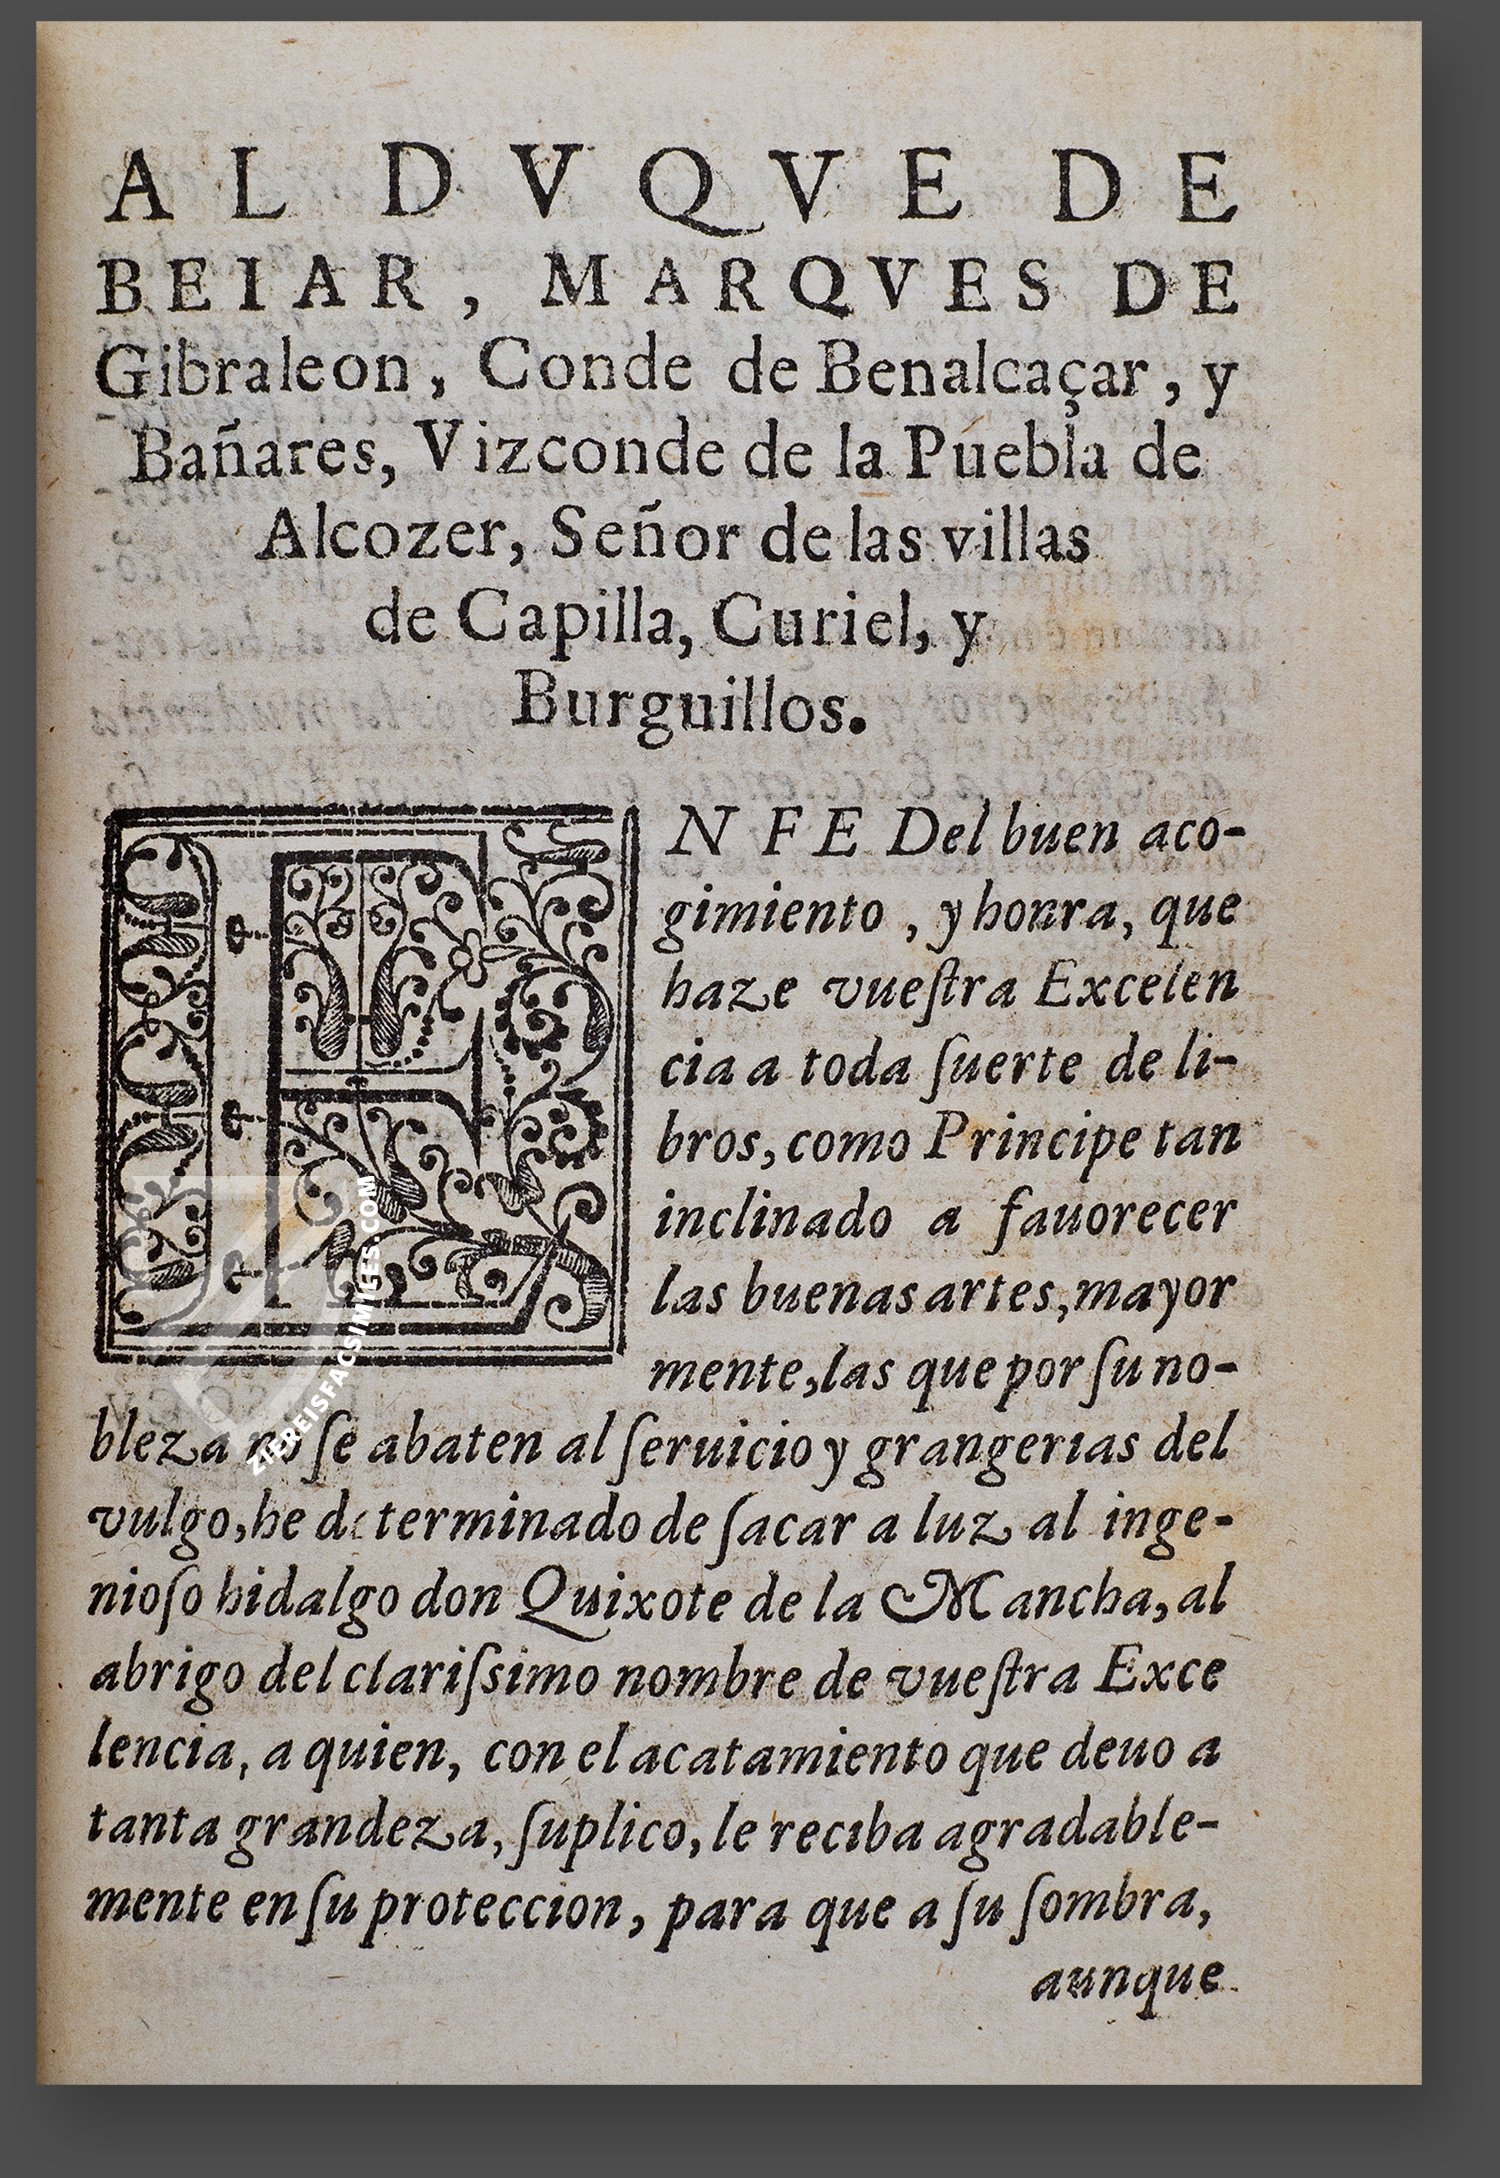 AL DVQVE DE
BEIAR, MARQVES DE
Gibraleon, Conde de Benalcaçar, y
Bañares, Vizconde de la Puebla de
Alcozer, Señor de las villas
de Capilla, Curiel, y
Burguillos.
EN FE Del buen aco-
gimiento, y honra, que
haze vueſtra Excelen
cia a toda ſuerte de li-
bros, como Principe tan
inclinado a fauorecer
las buenas artes, mayor
mente, las que por ſu no-
bleza no ſe abaten al ſeruicio y grangerias del
vulgo, he determinado de ſacar a luz al inge-
nioſo hidalgo don Quixote de la Mancha, al
abrigo del clariſsimo nombre de vueſtra Exce
lencia, a quien, con el acatamiento que deuo a
tanta grandeza, ſuplico, le reciba agradable-
mente en ſu proteccion, para que a ſu ſombra,
aunque
ZIEREISFACSIMILES.COM